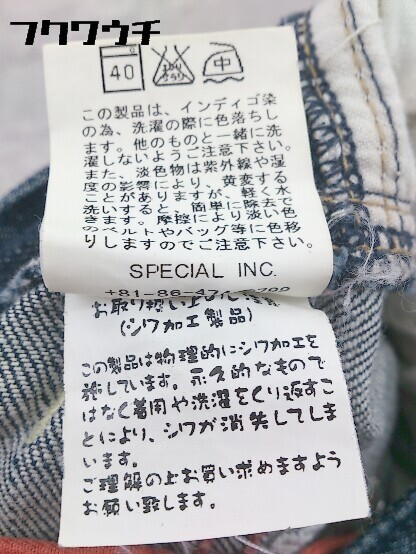 フクワウチ
40
エンソ
サラシ
中
この製品は、インディゴ染
の為、洗濯の際に色落ちし
ます。他のものと一緒に洗
濯しないようご注意下さい。
また、淡色物は紫外線や湿
度の影響により、黄変する
ことがありますが、軽く水
洗いすると、簡単に除去で
きます。摩擦により淡い色
のベルトやバッグ等に色移
りしますのでご注意下さい。
SPECIAL INC.
お取り扱い上のご注意
(シワ加工製品)
この製品は物理的にシワ加工を
施しています。永久的なもので
はなく着用や洗濯をくり返すこ
とにより、シワが消失してしま
います。
ご理解の上お買い求めますよう
お願い致します。